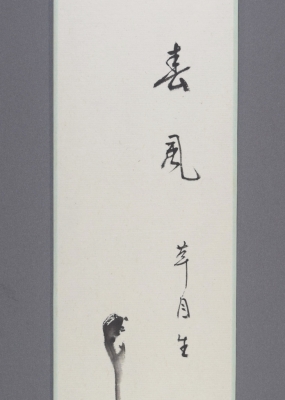 春風
草月生